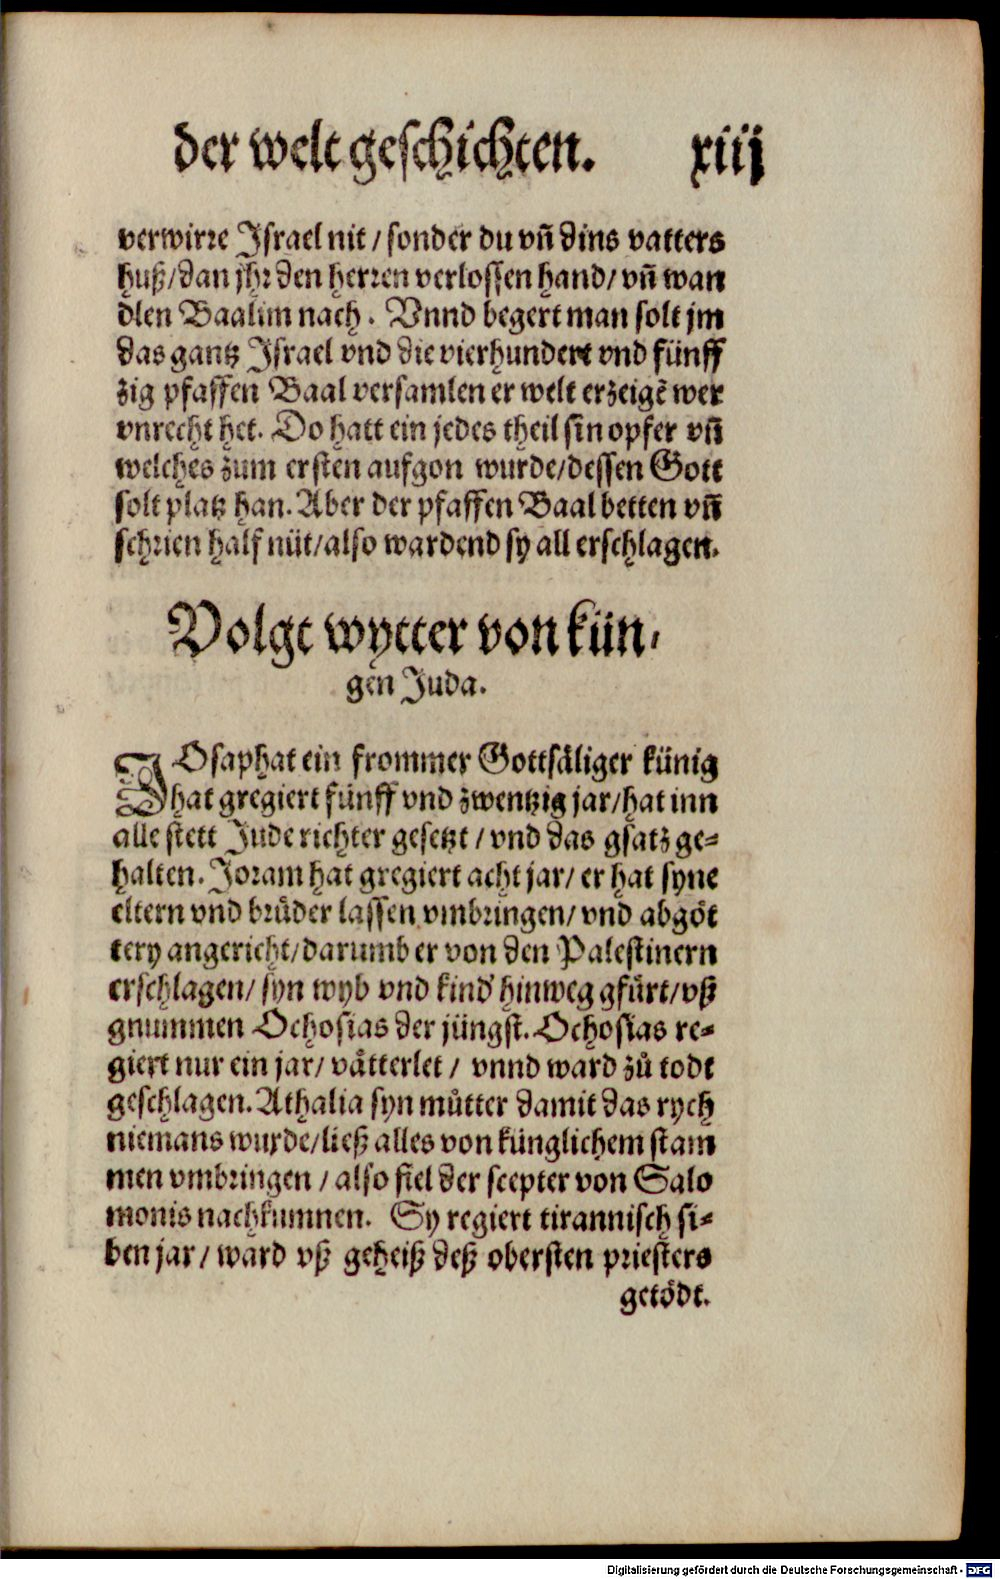 der welt geschichten. xiij
verwirre Israel nit / sonder du vñ dins vatters
huß / dan jhr den herren verlossen hand / vñ wan
dlen Baalim nach. Vnnd begert man solt jm
das gantz Israel vnd die vierhundert vnd fünff
zig pfaffen Baal versamlen er welt erzeigẽ wer
vnrecht het. Do hatt ein jedes theil sin opfer vñ
welches zum ersten aufgon wurde / dessen Gott
solt platz han. Aber der pfaffen Baal betten vñ
schrien half nüt / also wardend sy all erschlagen.
Volgt wytter von kün-
gen Juda.
JOsaphat ein frommer Gottsäliger künig
hat gregiert fünff vnd zwentzig jar / hat inn
alle stett Jude richter gesetzt / vnd das gsatz ge-
halten. Joram hat gregiert acht jar / er hat syne
eltern vnd brůder lassen vmbringen / vnd abgöt
tery angericht / darumb er von den Palestinern
erschlagen / syn wyb vnd kind hinweg gfürt / vß
gnummen Ochosias der jüngst. Ochosias re-
giert nur ein jar / vätterlet / vnnd ward zů todt
geschlagen. Athalia syn můtter damit das rych
niemans wurde / ließ alles von künglichem stam
men vmbringen / also fiel der scepter von Salo
monis nachkumnen. Sy regiert tirannisch si-
ben jar / ward vß geheiß deß obersten priesters
getödt.
Digitalisierung gefördert durch die Deutsche Forschungsgemeinschaft - DFG